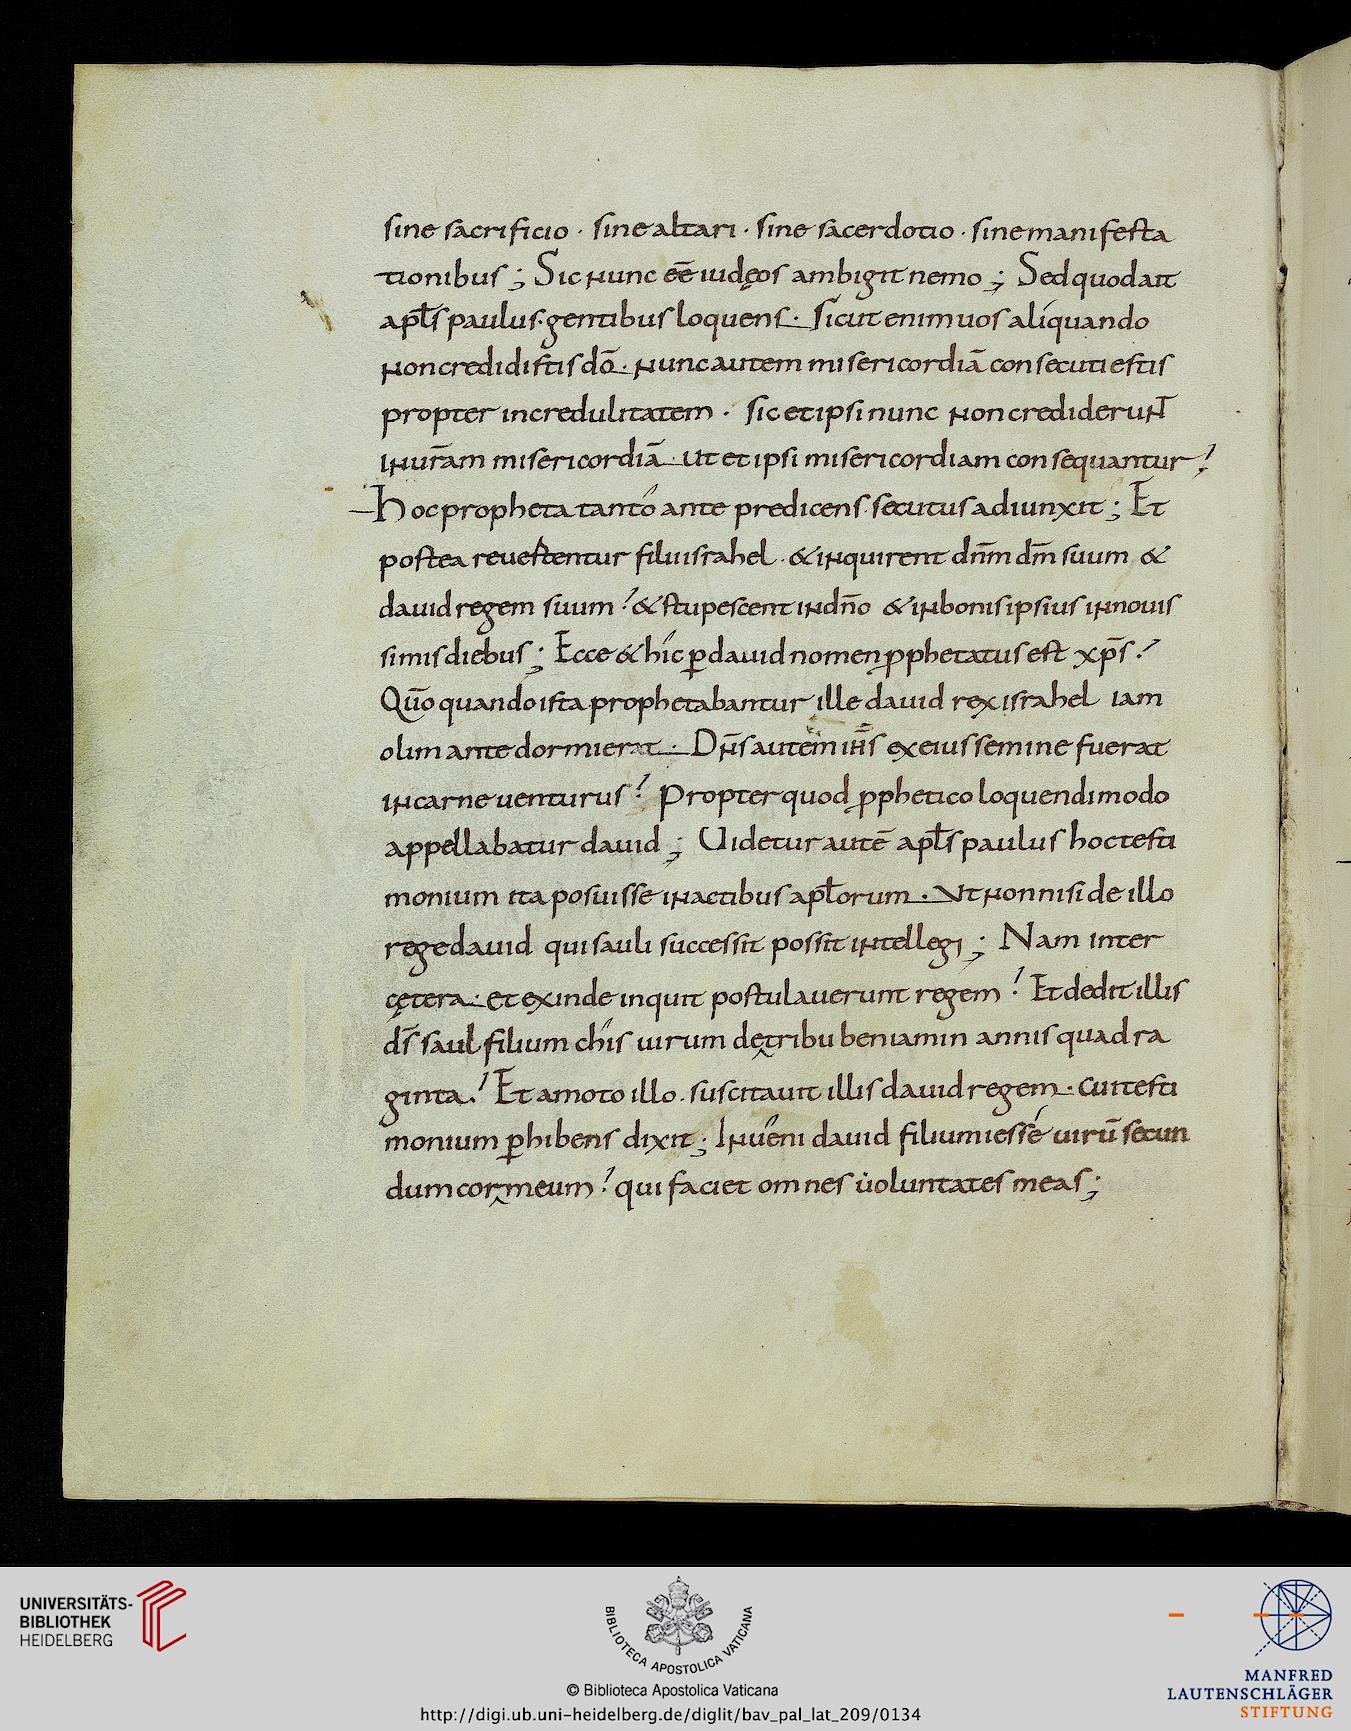 sine sacrificio · sine altari · sine sacerdotio · sine manifesta
tionibus ; Sic nunc eē iudęos ambigit nemo ; Sed quod ait
apłs paulus · gentibus loquens · Sicut enim uos aliquando
non credidistis dō · nunc autem misericordiā consecuti estis
propter incredulitatem · sic et ipsi nunc non crediderunt
in ur̄am misericordiā · ut et ipsi misericordiam consequantur?
Hoc propheta tanto ante predicens · secutus adiunxit ; Et
postea reuertentur filii israhel · & inquirent dn̄m dm̄ suum &
dauid regem suum? & stupescent in dn̄o & in bonis ipsius in nouis
simis diebus ; Ecce & hic ꝑ dauid nomen ꝓphetatus est xp̄s?
Quō quando ista prophetabantur ille dauid rex israhel iam
olim ante dormierat · Dn̄s autem ih̄s ex eius semine fuerat
in carne uenturus? Propter quod ꝓphetico loquendi modo
appellabatur dauid ; Uidetur autē apłs paulus hoc testi
monium ita posuisse in actibus apłorum · Ut non nisi de illo
rege dauid qui sauli successit possit intellegi ; Nam inter
cętera · et exinde inquit postulauerunt regem? Et dedit illis
ds̄ saul filium chis uirum de tribu beniamin annis quadra
ginta? Et amoto illo · suscitauit illis dauid regem · cui testi
monium ꝑhibens dixit ; Inueni dauid filium iesse uirū secun
dum cor meum? qui faciet omnes uoluntates meas ;
UNIVERSITÄTS-
BIBLIOTHEK
HEIDELBERG
BIBLIOTECA APOSTOLICA VATICANA
© Biblioteca Apostolica Vaticana
http://digi.ub.uni-heidelberg.de/diglit/bav_pal_lat_209/0134
MANFRED
LAUTENSCHLÄGER
STIFTUNG